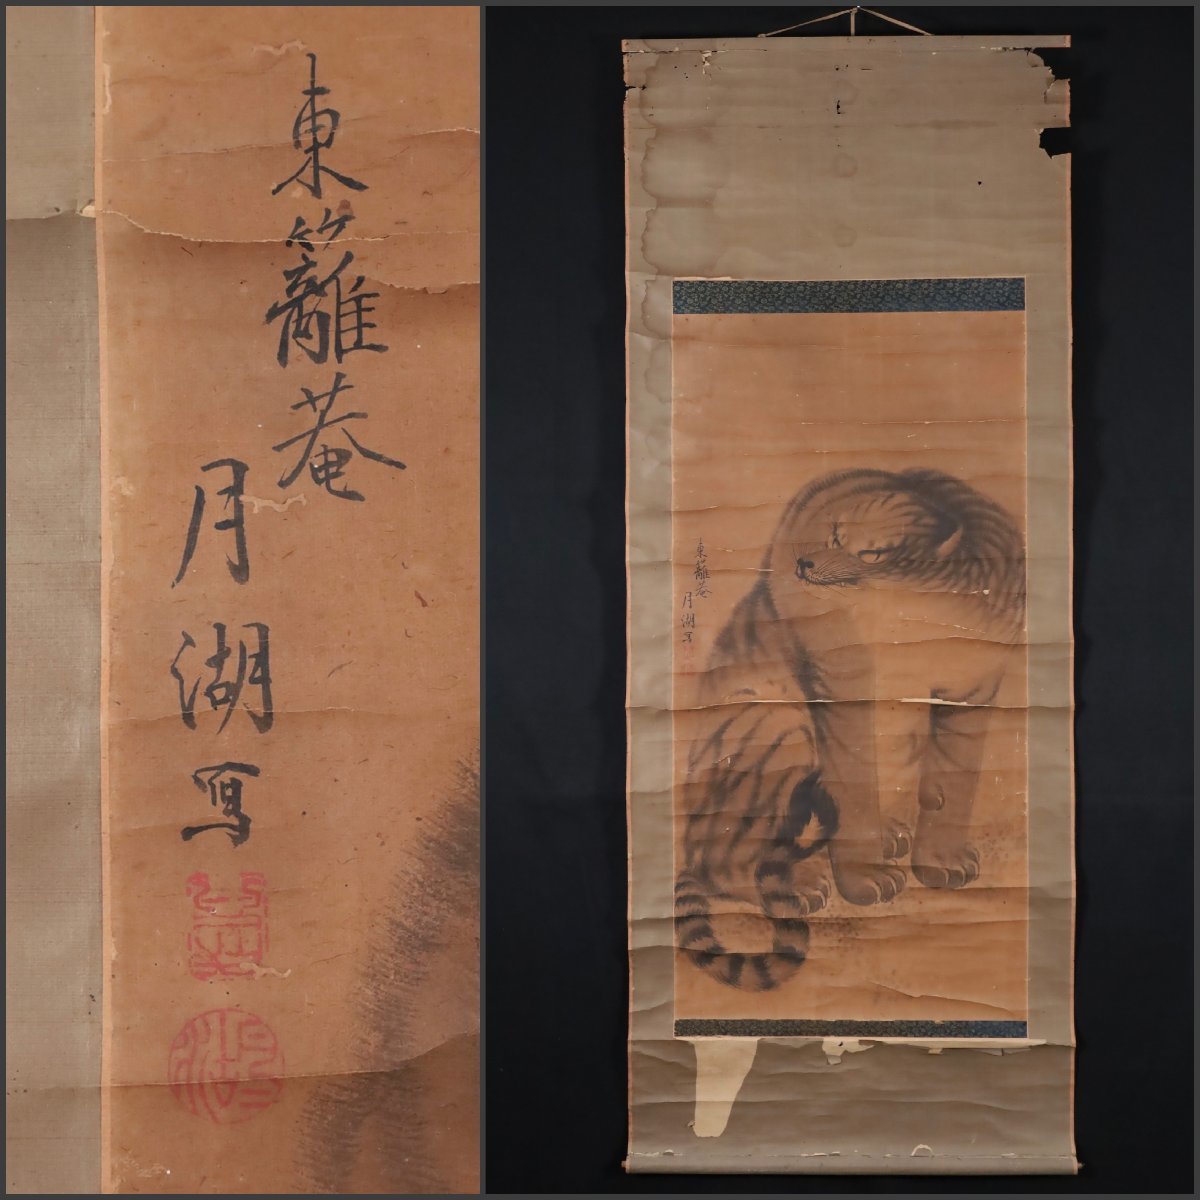 東籬菴
月湖寫
東籬菴
月湖寫